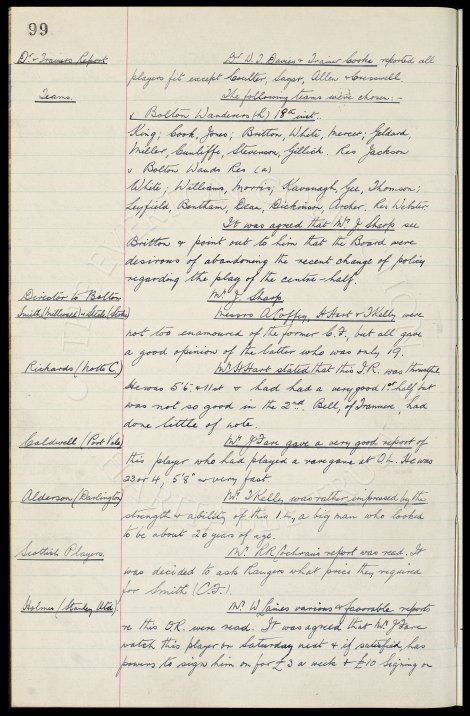 99
Dr. & Trainers Report    Dr D. J. Davies & Trainer Cooke reported all
players fit except Coulter, Sagar, Allen & Cresswell
Teams.    The following teams were chosen:-
v Bolton Wanderers (h) 18th inst.
King; Cook, Jones; Britton, White, Mercer; Geldard,
Miller, Cunliffe, Stevenson, Gillick. Res Jackson
v Bolton Wands Res (a)
White; Williams, Morris; Kavanagh, Gee, Thomson;
Leyfield, Bentham, Dean, Dickinson, Archer. Res Webster.
It was agreed that Mr J Sharp see
Britton & point out to him that the Board were
desirous of abandoning the recent change of policy
regarding the play of the centre-half.
Director to Bolton    Mr J. Sharp
Smith (Millwall) & Steele (Stoke)    Messrs A Coffey, H Hart & T Kelly were
not too enamoured of the former C.F., but all gave
a good opinion of the latter who was only 19.
Richards (Notts C.)    Mr H Hart stated that this I.R. was thrustful
He was 5'6" & 11st & had had a very good 1st half but
was not so good in the 2nd. Bell, of Tranmere, had
done little of note.
Caldwell (Port Vale)    Mr J Fare gave a very good report of
this player who had played a rare game at O.L. He was
23 or 4, 5'8" & very fast.
Alderson (Darlington)    Mr T Kelly was rather impressed by the
strength & ability of this I.L., a big man who looked
to be about 20 years of age.
Scottish Players.    Mr R R Cochrain's report was read. It
was decided to ask Rangers what price they required
for Smith (C.F.).
Holmes (Stanley Utd).    Mr. W Gaines various & favorable reports
re this O.R. were read. It was agreed that Mr J Fare
watch this player on Saturday next & if satisfied, has
powers to sign him on for £3 a week & £10 Signing on